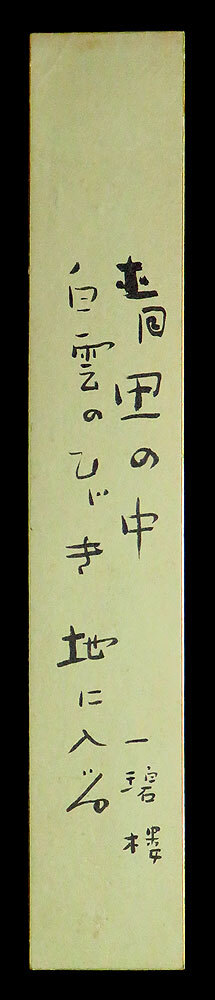 青田の中
白雲のひびき地に入る
一碧楼